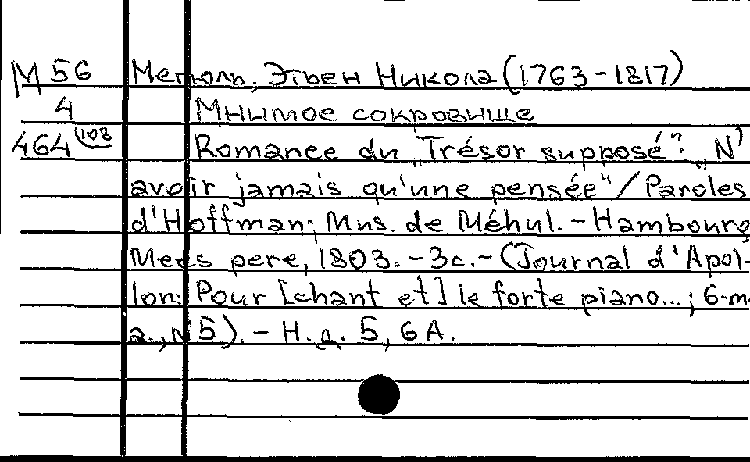 М 56 Мегюль, Этьен Никола (1763-1817)
4 Мнимое сокровище
464 108 Romance du „Trésor supposé": „N'
avoir jamais qu'une pensée"/Paroles
d'Hoffman; Mus. de Méhul. - Hambourg
Mees pere, 1803. - 3c. - (Journal d'Apol-
lon: Pour [chant et] le forte piano...; 6-m
a., N5). - Н. д. 5, 6 A.